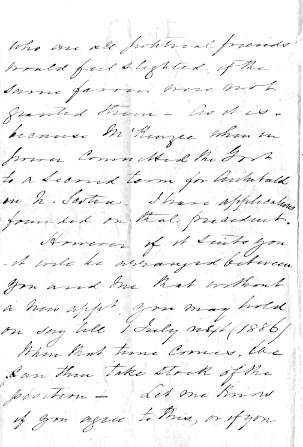 who are all political friends
would feel slighted, if the
same favour were not
granted them – As it is –
because McKenzie when in
power Committed the Govt
to a second term for Archibald
in N. Scotia. I have applications
founded on that precedent.
However if it suits you
it will be arranged between
you and me that without
a new appt. you may hold
on say till 1 July next (1886)
When that time comes, we
can then take stock of the
position – Let me know
if you agree to this, or if you